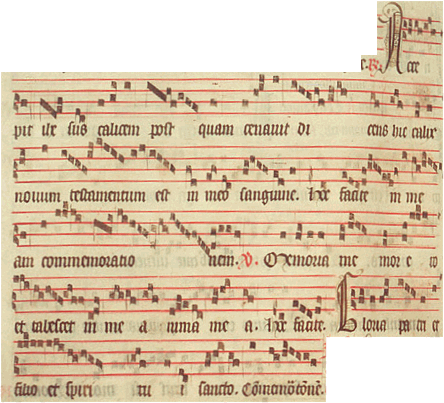 ℟. Acce
pit ihs sus calicem post quam cenauit di cens hic calix
nouum testamentum est in meo sanguine. hec facite in me
am commemoratio nem. ℣. Memoria me mor e ro
et tabescet in me a nima me a. hec facite. Gloria pa tri et
filio et spiri tu i sancto. Cōmemōtōnē.